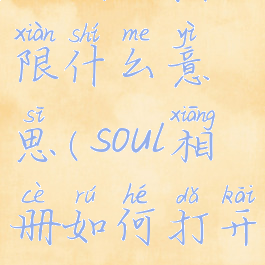 xiàn shí me yì
限什么意
sī xiāng
思(soul相
cè rú hé dǎ kāi
册如何打开